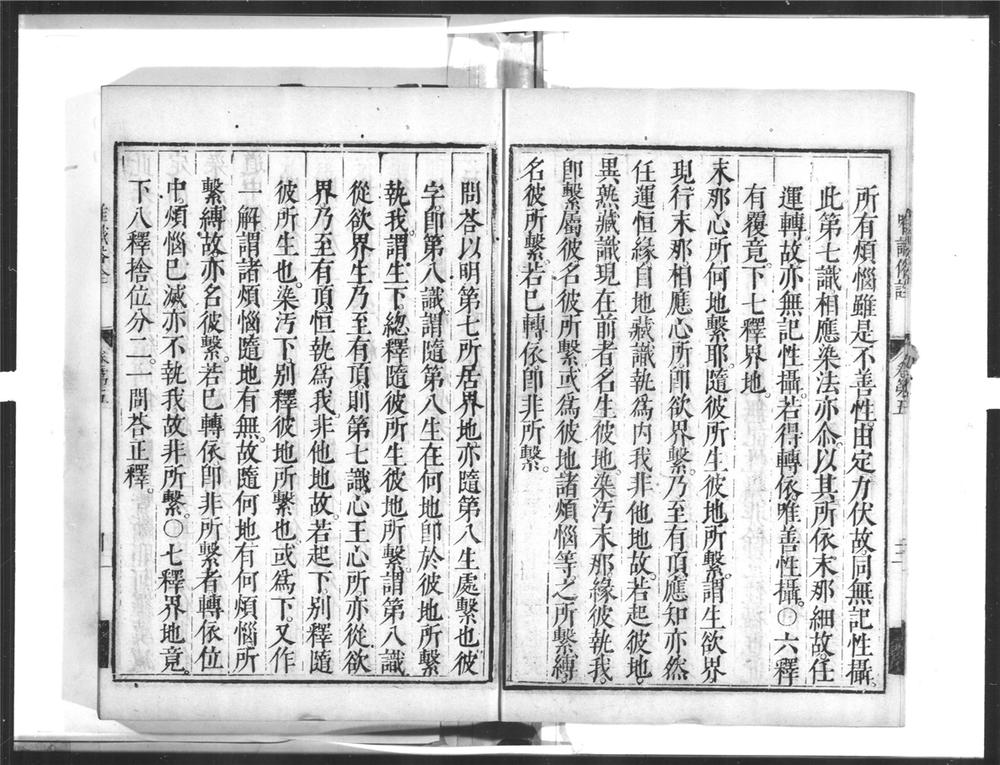 所有煩惱雖是不善性由定力伏故同無記性攝。
此第七識相應染法亦尒以其所依末那細故。任
運轉故亦無記性攝。若得轉依唯善性攝。○六釋
有覆竟下七釋界地。
末那心所何地繫耶。隨彼所生彼地所繫謂生欲界
現行末那相應心所。卽欲界繫。乃至有頂應知亦然
任運恒緣自地藏識執爲內我非他地故。若起彼地
異熟藏識現在前者名生彼地。染汚末那緣彼執我。
卽繫屬彼名彼所繫或爲彼地諸煩惱等之所繫縛
名彼所繫。若已轉依卽非所繫。
問荅以明第七所居界地亦隨第八生處繫也彼
字。卽第八識謂隨第八生在何地卽於彼地所繫
執我。謂生下。總釋隨彼所生彼地所繫。謂第八識
從欲界生乃至有頂。則第七識心王心所亦從欲
界乃至有頂恒執爲我。非他地故。若起下。別釋隨
彼所生也。染汚下別釋彼地所繫也或爲下。又作
一解謂諸煩惱隨地有無。故隨何地有何煩惱所
繫縛故亦名彼繫。若已轉依卽非所繫者轉依位
中。煩惱已滅亦不執我故非所繫。○七釋界地竟。
下八釋捨位分二。一問荅正釋。